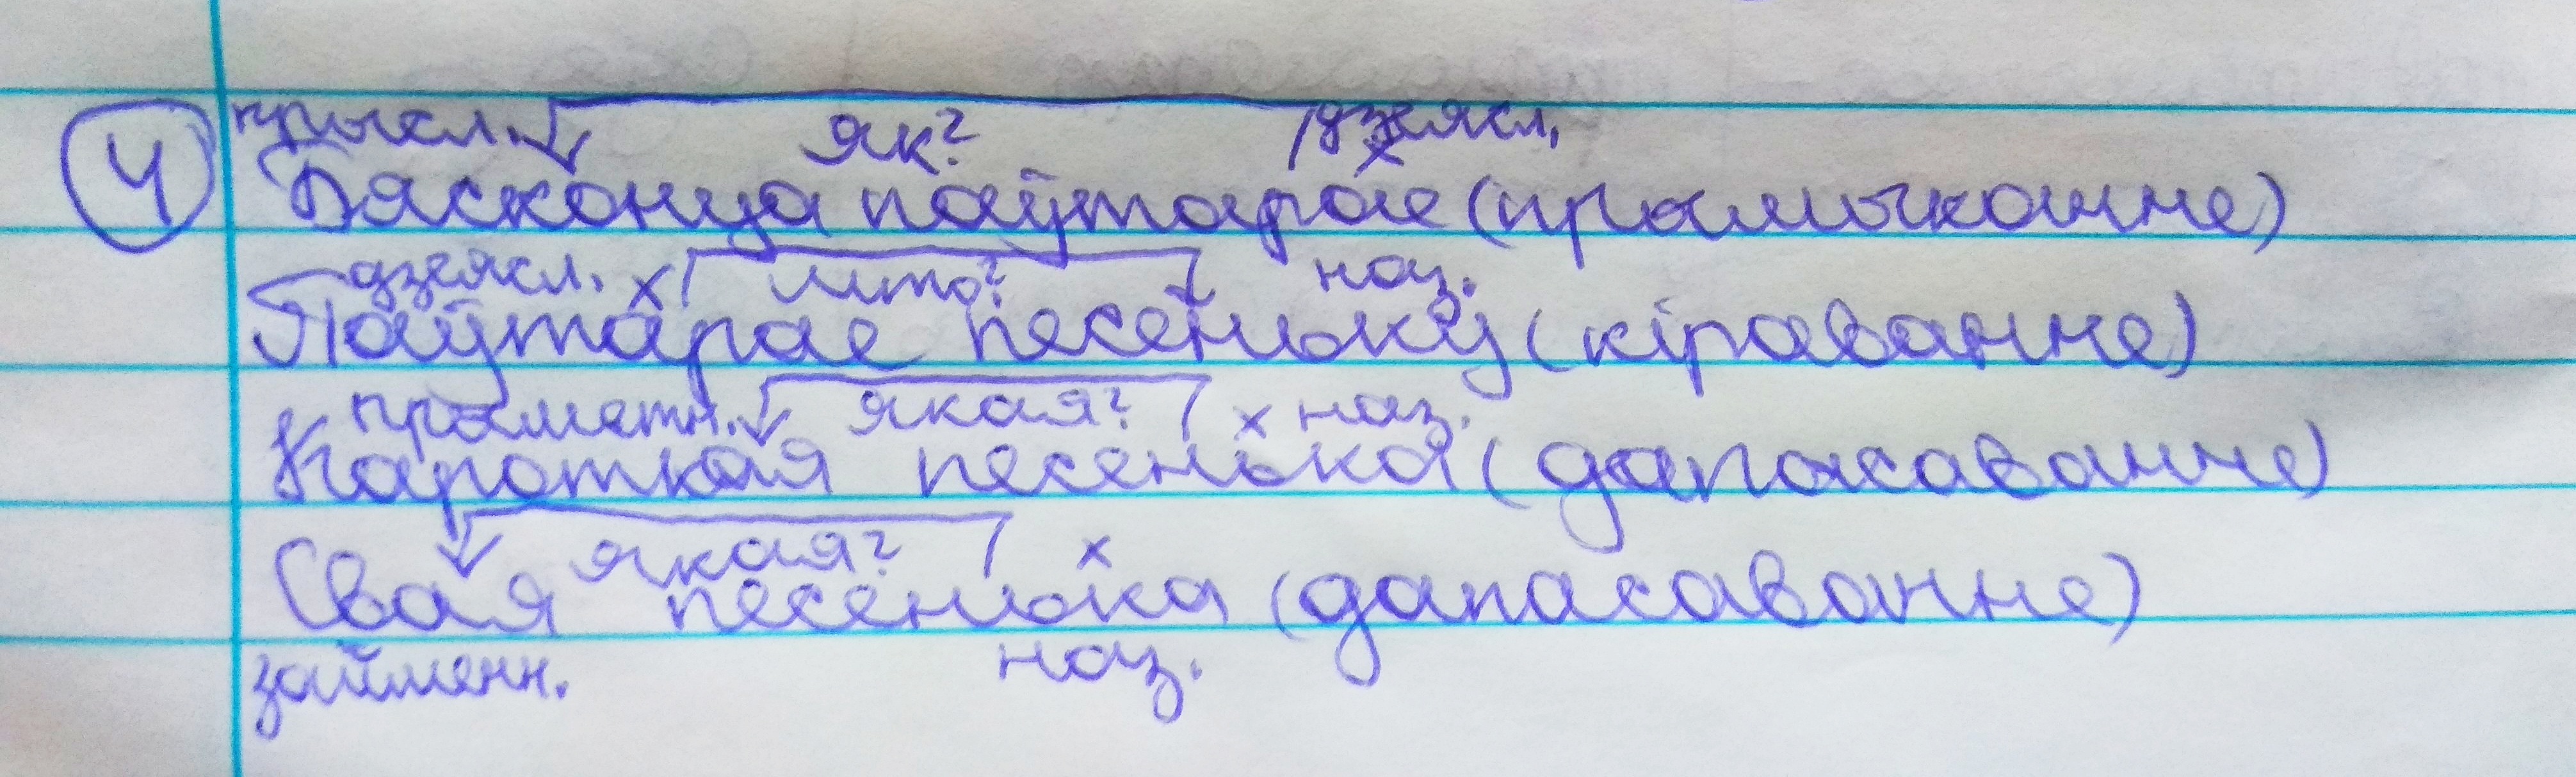 4
прысл. як? дзеясл.
Бясконца паўтарае (прымыканне)
дзеясл. х што? наз.
Паўтарае песеньку (кіраванне)
прыметн. якая? х наз.
Кароткая песенька (дапасаванне)
якая? х
Свая песенька (дапасаванне)
займенн. наз.